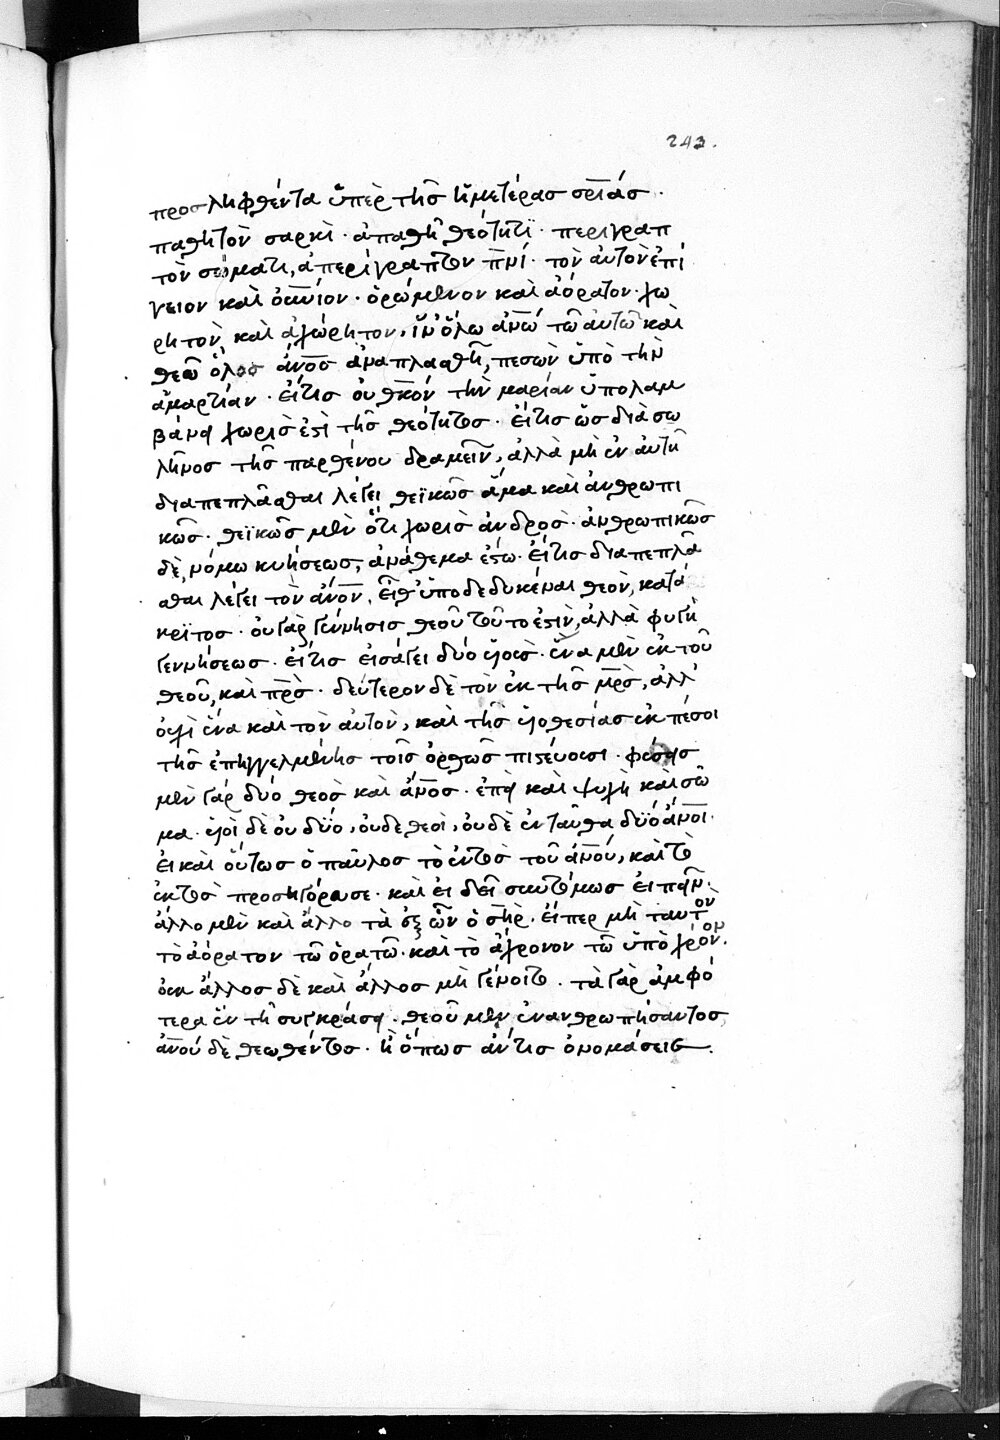 243.
προσληφθέντα ὑπὲρ τῆς ἡμετέρας σρίας·
παθητὸν σαρκὶ· ἀπαθῆ θεότητϊ· περιγραπ
τὸν σώματι, ἀπερίγραπτον πνι· τὸν αὐτὸν ἐπί
γειον καὶ οὐνιον· ὁρώμενον καὶ ἀόρατον· χω
ρητὸν, καὶ ἀχώρητον, ἵν' ὅλω ἀνω τῶ αὐτῶ καὶ
θεῶ ὅλος ἄνος ἀναπλασθῆ, πεσὼν ὑπὸ τὴν
ἁμαρτίαν· εἴτις οὐ θκον τὴν μαρίαν ὑπολαμ
βάνει χωρὶς ἐστὶ τῆς θεότητος· εἴτις ὡς διὰ σω
λῆνος τῆς παρθένου δραμεῖν, ἀλλὰ μὴ ἐν αὐτῆ
διαπεπλᾶσθαι λέγει θεϊκῶς ἅμα καὶ ἀνθρωπι
κῶς· θεϊκῶς μὲν ὅτι χωρὶς ἀνδρὸς· ἀνθρωπικῶς
δὲ, νόμω κυήσεως, ἀνάθεμα ἔστω· εἴτις διαπεπλᾶ
σθαι λέγει τὸν ἄνον, εἶθ' ὑποδεδυκέναι θεὸν, κατά
κρϊτος· οὐ γὰρ γέννησις θεοῦ τοῦτο ἐστὶν, ἀλλὰ φυγὴ
γεννήσεως· εἴτις εἰσάγει δύο υἱοὺς· ἕνα μὲν ἐκ τοῦ
θεοῦ, καὶ πρς· δεύτερον δὲ τὸν ἐκ τῆς μρς, ἀλλ'
οὐχὶ ἕνα καὶ τὸν αὐτὸν, καὶ τῆς υἱοθεσίας ἐκπέσοι
τῆς ἐπηγγελμένης τοῖς ὀρθῶς πιστεύουσι· φύσεις
μὲν γάρ δύο θεὸς καὶ ἄνος· ἐπεὶ καὶ ψυχὴ καὶ σῶ
μα· υἱοὶ δὲ οὐ δύο, οὐδε θεοὶ, οὐδὲ ἐνταῦθα δύο ἄνοι·
εἰ καὶ οὕτως ὁ παῦλος τὸ ἐντὸς τοῦ ἀνου, καὶ τὸ
ἐκτὸς προσηγόρευσε· καὶ εἰ δεῖ συντόμως εἰπεῖν·
ἄλλο μὲν καὶ ἄλλο τὰ ἐξ ὧν ὁ σηρ· εἴπερ μὴ ταυτὸν
τὸ ἀόρατον τῶ ὁρατῶ· καὶ τὸ ἄχρονον τῶ ὑπὸ χρόνον·
οὐκ ἄλλος δὲ καὶ ἄλλος μὴ γένοιτο· τὰ γὰρ ἀμφό
τερα ἓν τῆ συγκράσει· θεοῦ μὲν ἐνανθρωπήσαντος
ἀνου δὲ θεωθέντος· ἢ ὅπως ἄν τις ὀνομάσειε.